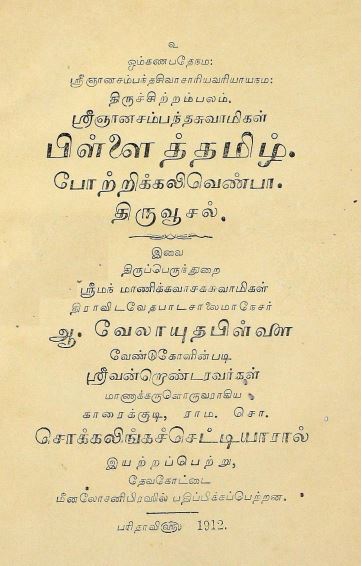 உ
ஓம்கணபதேநம:
ஸ்ரீஞானசம்பந்தசிவாசாரியவரியாயநம:
திருச்சிற்றம்பலம்.
ஸ்ரீஞானசம்பந்தசுவாமிகள்
பிள்ளைத்தமிழ்.
போற்றிக்கலிவெண்பா.
திருவூசல்.
இவை
திருப்பெருந்துறை
ஸ்ரீமந் மாணிக்கவாசகசுவாமிகள்
திராவிடவேதபாடசாலைமாநேசர்
ஆ. வேலாயுதபிள்ளை
வேண்டுகோளின்படி
ஸ்ரீவன்றொண்டரவர்கள்
மாணாக்கருளொருவராகிய
காரைக்குடி, ராம. சொ.
சொக்கலிங்கச்செட்டியாரால்
இயற்றப்பெற்று,
தேவகோட்டை
மீனலோசனிபிரஸில் பதிப்பிக்கப்பெற்றன.
பரிதாவி௵ 1912.